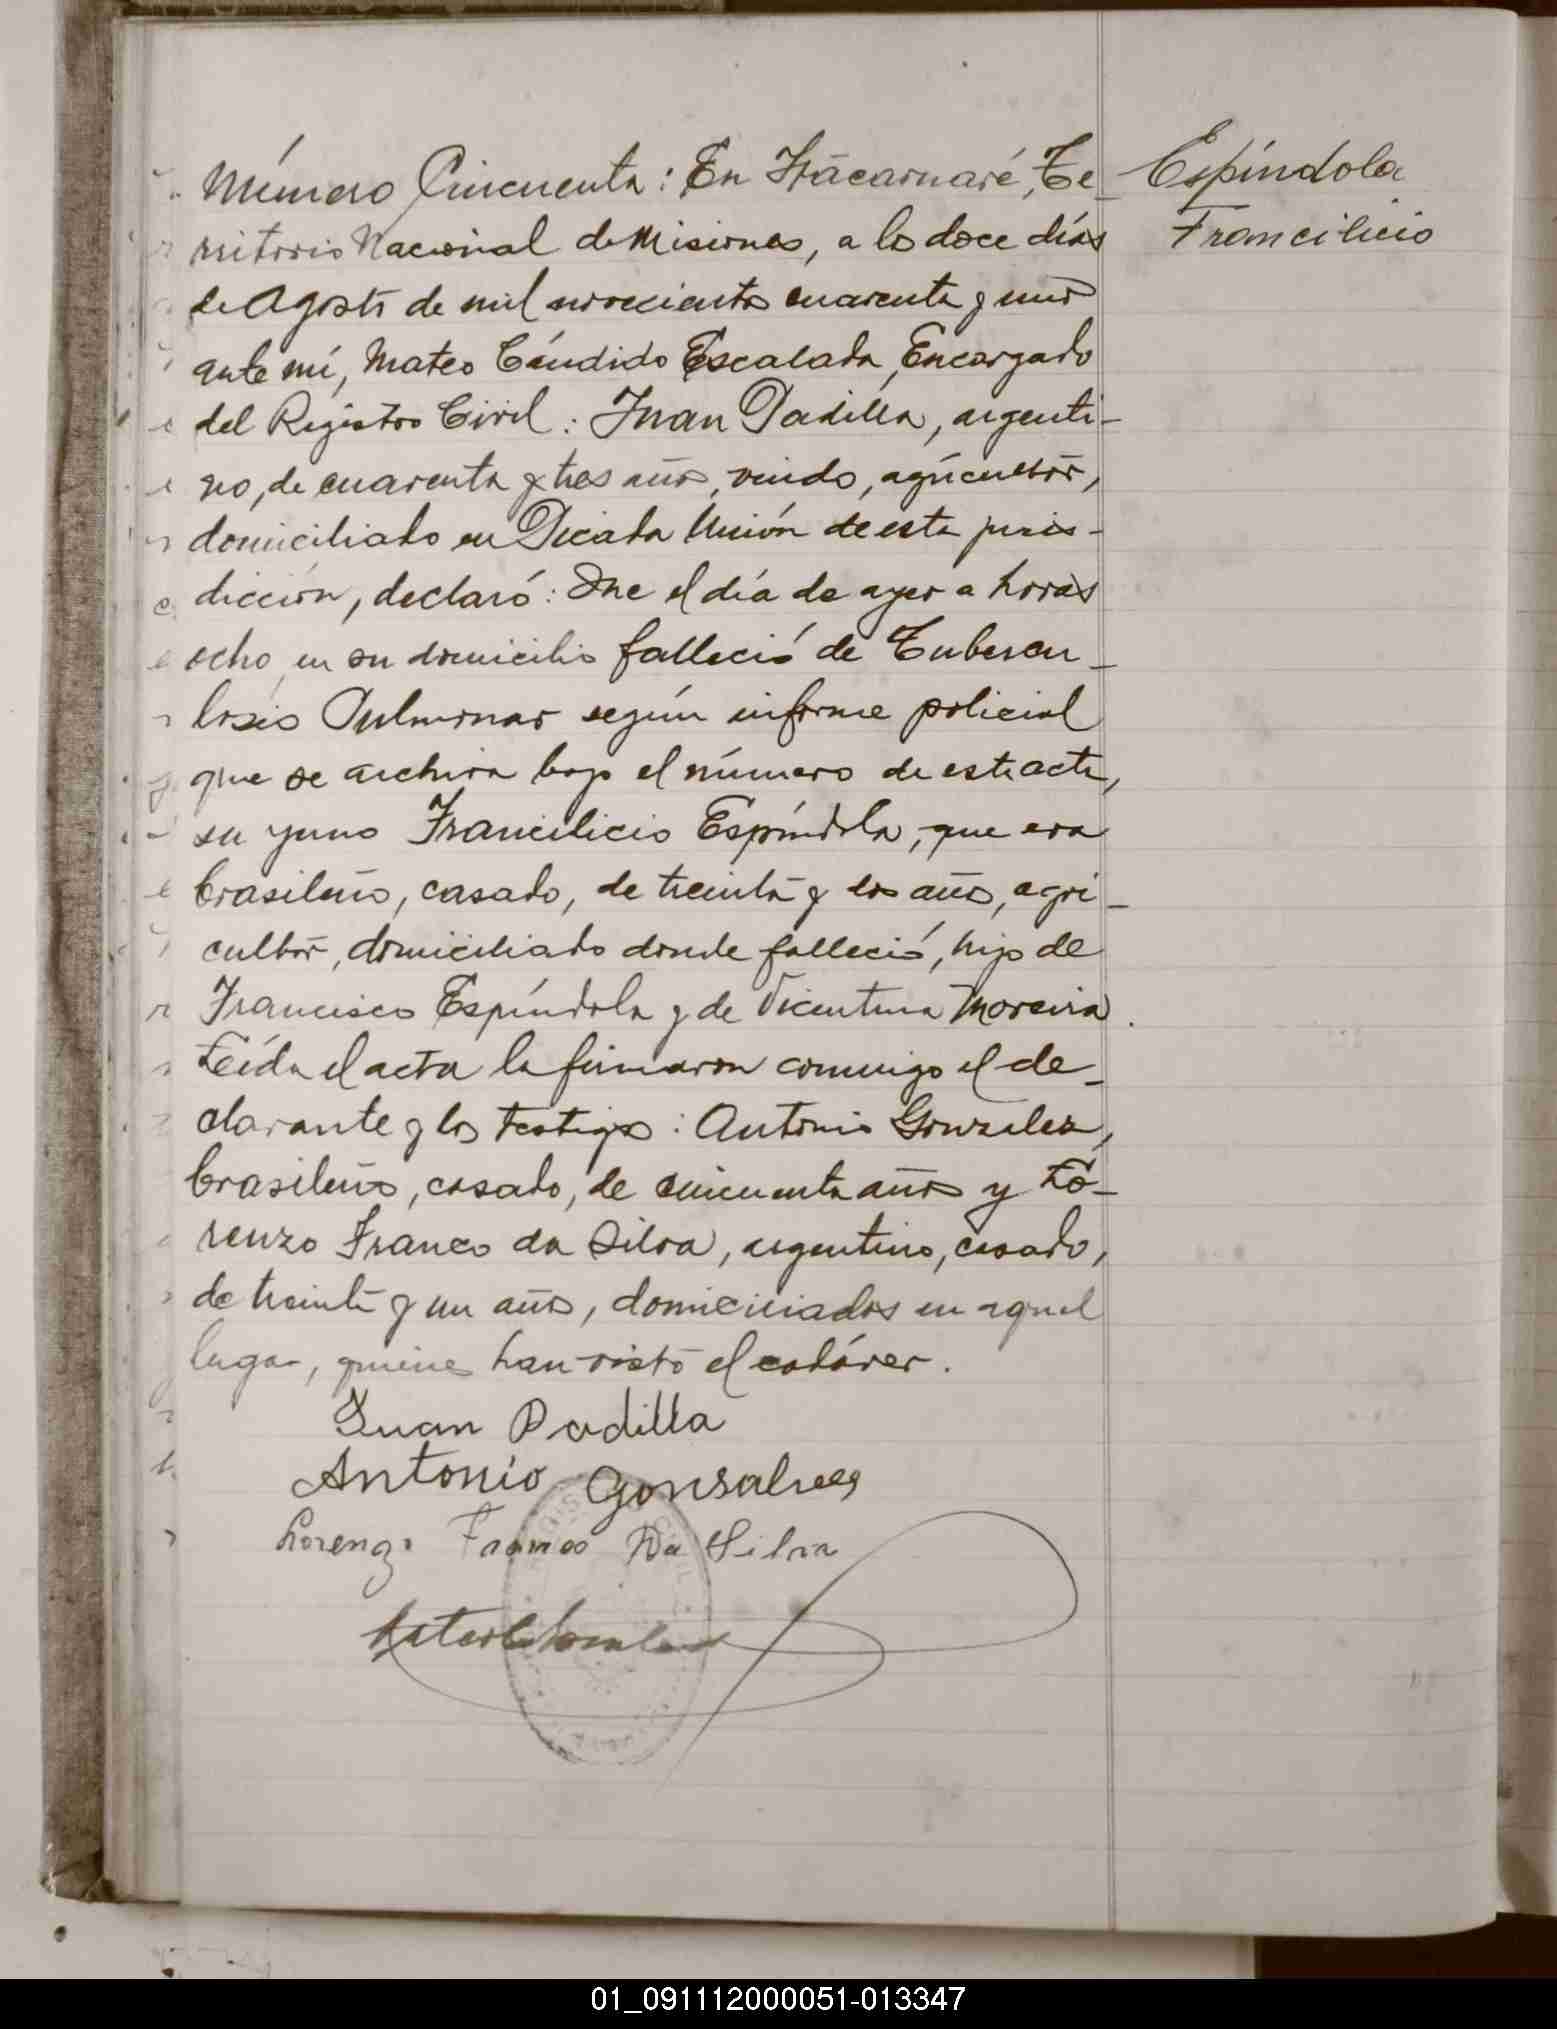 Número Cincuenta: En Itácaruaré, Te-
rritorio Nacional de Misiones, a los doce días
de Agosto de mil novecientos cuarenta y uno
ante mí, Mateo Cándido Escalada, Encargado
del Registro Civil: Juan Padilla, argenti-
no, de cuarenta y tres años, viudo, agricultor,
domiciliado en Picada Unión de esta juris-
dicción, declaró: Que el día de ayer a horas
ocho, en su domicilio falleció de Tubercu-
losis Pulmonar según informe policial
que se archiva bajo el número de esta acta,
su yerno Francilicio Espíndola, que era
brasileño, casado, de treinta y dos años, agri-
cultor, domiciliado donde falleció, hijo de
Francisco Espíndola y de Vicentina Moreira.
Leída el acta la firmaron conmigo el de-
clarante y los testigos: Antonio Gonzalez,
brasileño, casado, de cincuenta años y Lo-
renzo Franco da Silva, argentino, casado,
de treinta y un años, domiciliados en aquel
lugar, quienes han visto el cadáver.
Espíndola
Francilicio
Juan Padilla
Antonio Gonsalves
Lorenzo Franco Da Silva
01_091112000051-013347